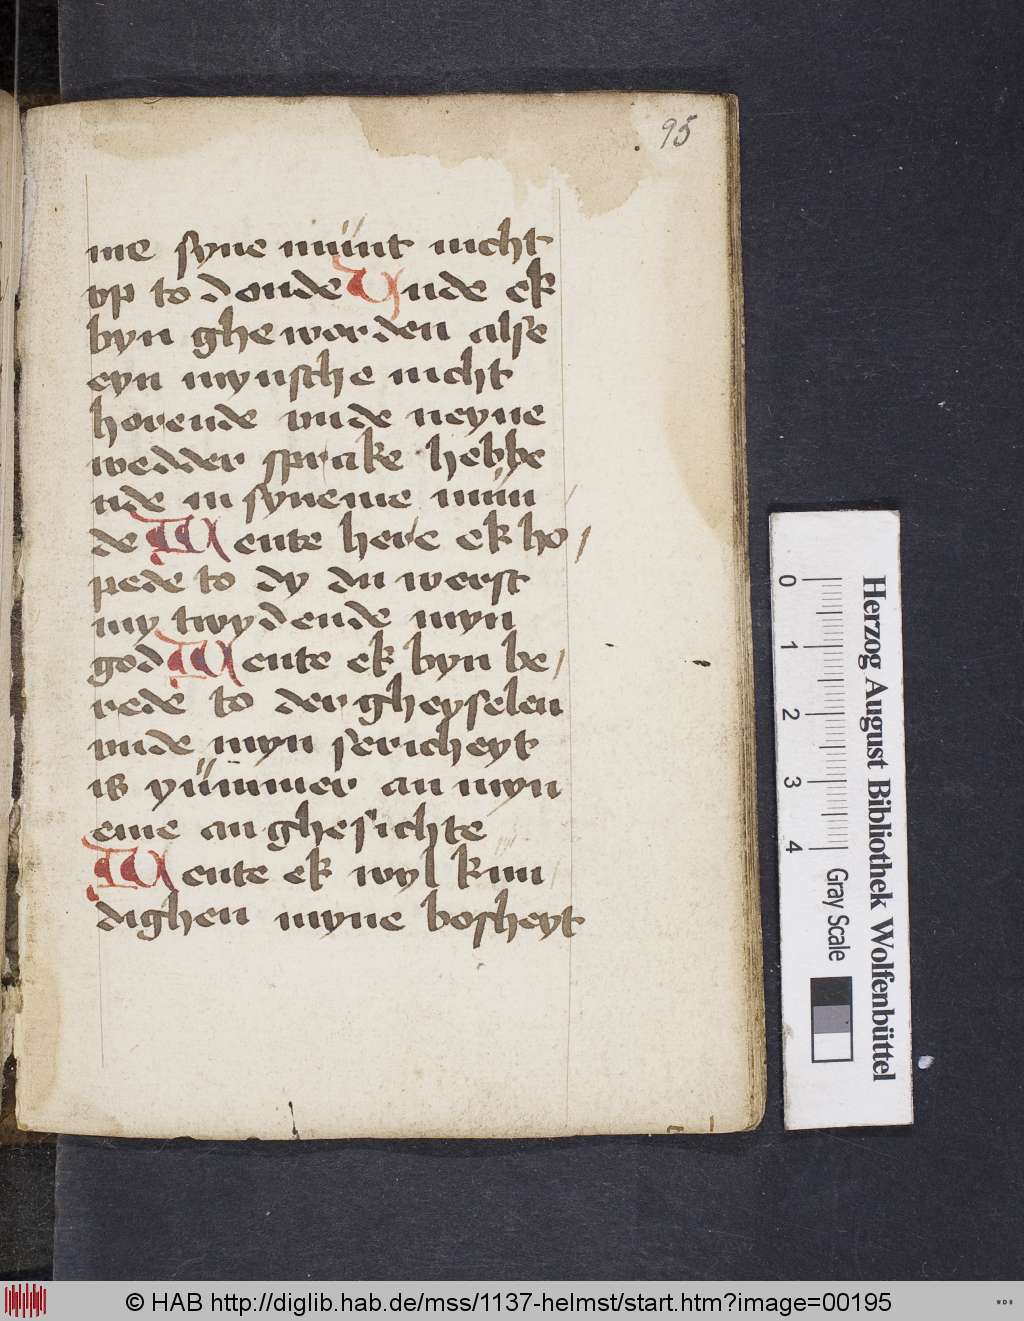 95
me syne munt nicht
vp to donde Vnde ek
byn ghe worden alse
eyn mynsche nicht
horende vnde neyne
wedder sprake hebbe
nde in syneme mun
de Wente here ek ho/
pede to dy du werst
my twydende myn
god Wente ek byn be/
rede to der gheyselen
vnde myn sericheyt
is yummer an myn
eme an ghesichte
Wente ek wyl kun
dighen myne bosheyt
0 1 2 3 4
Herzog August Bibliothek Wolfenbüttel
Gray Scale
© HAB http://diglib.hab.de/mss/1137-helmst/start.htm?image=00195